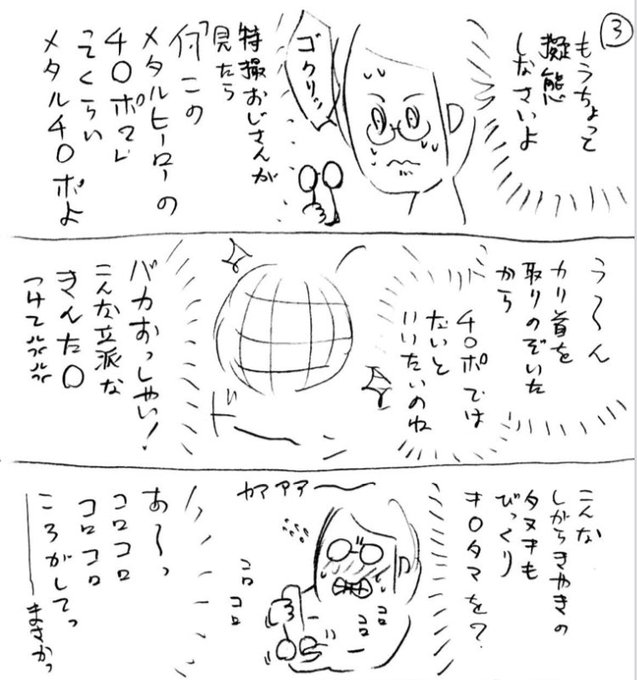 ③
もうちょって
擬態
しなさいよ
ゴクリッ
特撮おじさんが
見たら
何このメタルヒーローの
チ○ポマン
ってくらい
メタルチ○ポよ
う〜ん
カリ首を
取りのぞいた
から
チ○ポでは
ないと
いいたいのね
ドーン
バカおっしゃい!
こんな立派な
きんた○
つけて
こんな
しがらきやきの
タヌキも
びっくり
キ○タマを?
カァアアー
コロコロ
コロコロ
あ〜っ
コロコロ
コロコロ
ころがしてっ
まさかっ